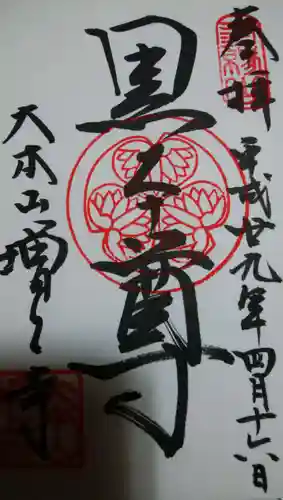 奉拝
平成廿九年四月十六日
黒本尊
大本山増上寺